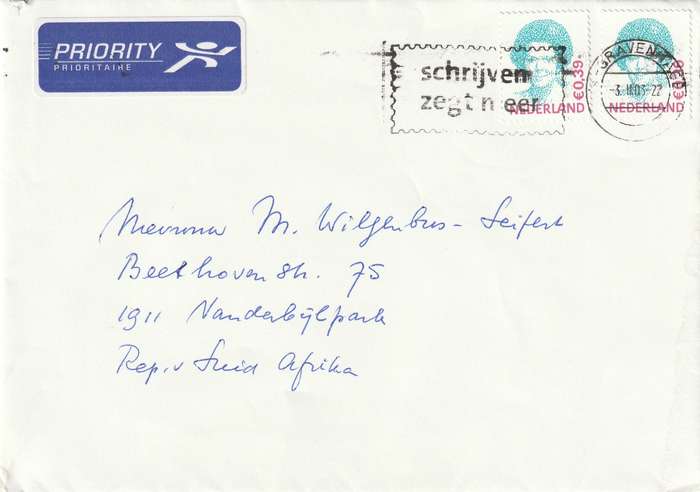 PRIORITY
PRIORITAIRE
schrijven
zegt meer
€0,39
NEDERLAND
NEDERLAND
'S-GRAVENHAGE
-3.II.03-22
Mevrouw M. Wilgenbus-Seifert
Beethovenstr. 75
1911 Vanderbijlpark
Rep. v Suid Afrika